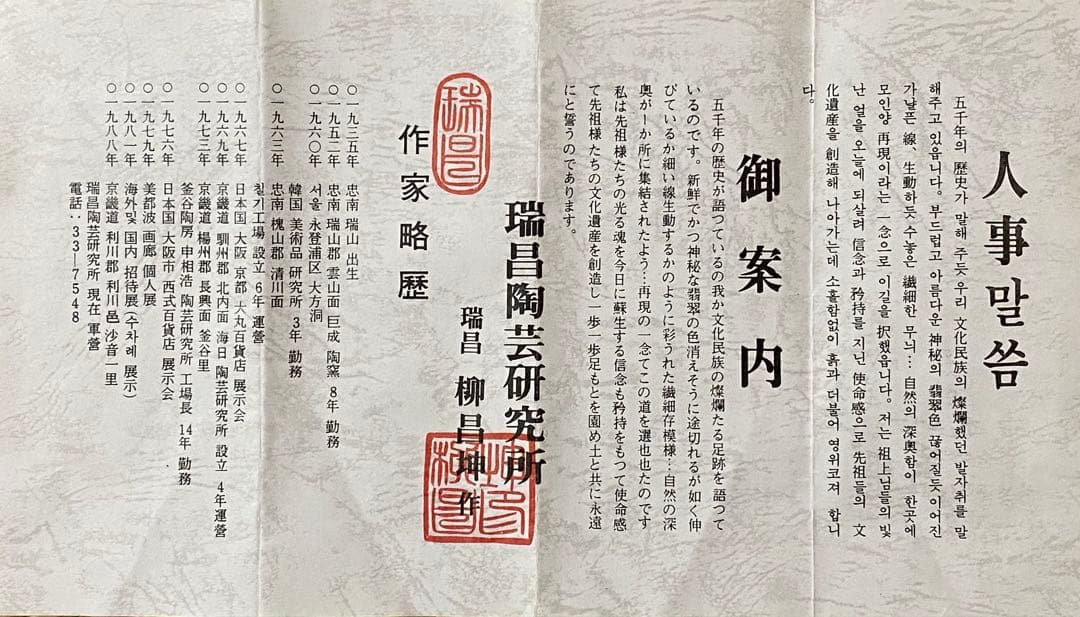 人事말씀
五千年의 歷史가 말해 주듯 우리 文化民族의 燦爛했던 발자취를 말
해주고 있읍니다. 부드럽고 아름다운 神秘의 翡翠色 끊어질듯 이어진
가냘픈 線、生動하듯 수놓은 纖細한 무늬… 自然의 深奧함이 한곳에
모인양 再現이라는 一念으로 이길을 択했읍니다. 저는 祖上님들의 빛
난 얼을 오늘에 되살려 信念과 矜持를 지닌 使命感으로 先祖들의 文
化遺産을 創造해 나아가는데 소홀함없이 흙과 더불어 영위코져 합니
다。
御案内
五千年の歴史が語つているの我か文化民族の燦爛たる足跡を 語つて
いるのです。新鮮でかつ神秘な翡翠の色消えそうに途切れるが如く伸
びているか細い線生動するかのように彩うれた繊細存模様…自然の深
奥がーか所に集結されたよう…再現の一念てこの道を選也也たのです
私は先祖様たちの光る魂を今日に蘇生する信念も矜持をもつて使命感
て先祖様 たちの文化遺産を創造し一歩一歩足もとを固め土と共に永遠
にと誓うのであります。
瑞昌陶芸研究所
瑞昌 柳昌坤 作
瑞昌
作家略歷
○一九三五年 忠南 瑞山 出生
○一九五二年 忠南 瑞山郡 雲山面 巨成 陶窯 8年 勤務
○一九六〇年 서울 永登浦区 大方洞
韓国 美術品 研究所 3年 勤務
○一九六三年 忠南 槐山郡 清川面
칠기工場 設立 6年 運営
○一九六七年 日本国 大阪 京都 大丸百貨店 展示会
○一九六九年 京畿道 驪州郡 北内面 海日 陶芸研究所 設立 4年運営
○一九七三年 京畿道 楊州郡 長興面 釜谷里
釜谷陶房 申相浩 陶芸研究所 工場長 14年 勤務
○一九七六年 日本国 大阪市 西武百貨店 展示会
○一九七九年 美都波 画廊 個人展
○一九八一年 海外및 国内 招待展(수차례 展示)
○一九八八年 京畿道 利川郡 利川邑 沙音一里
瑞昌陶芸研究所 現在 運営
電話：33―7548